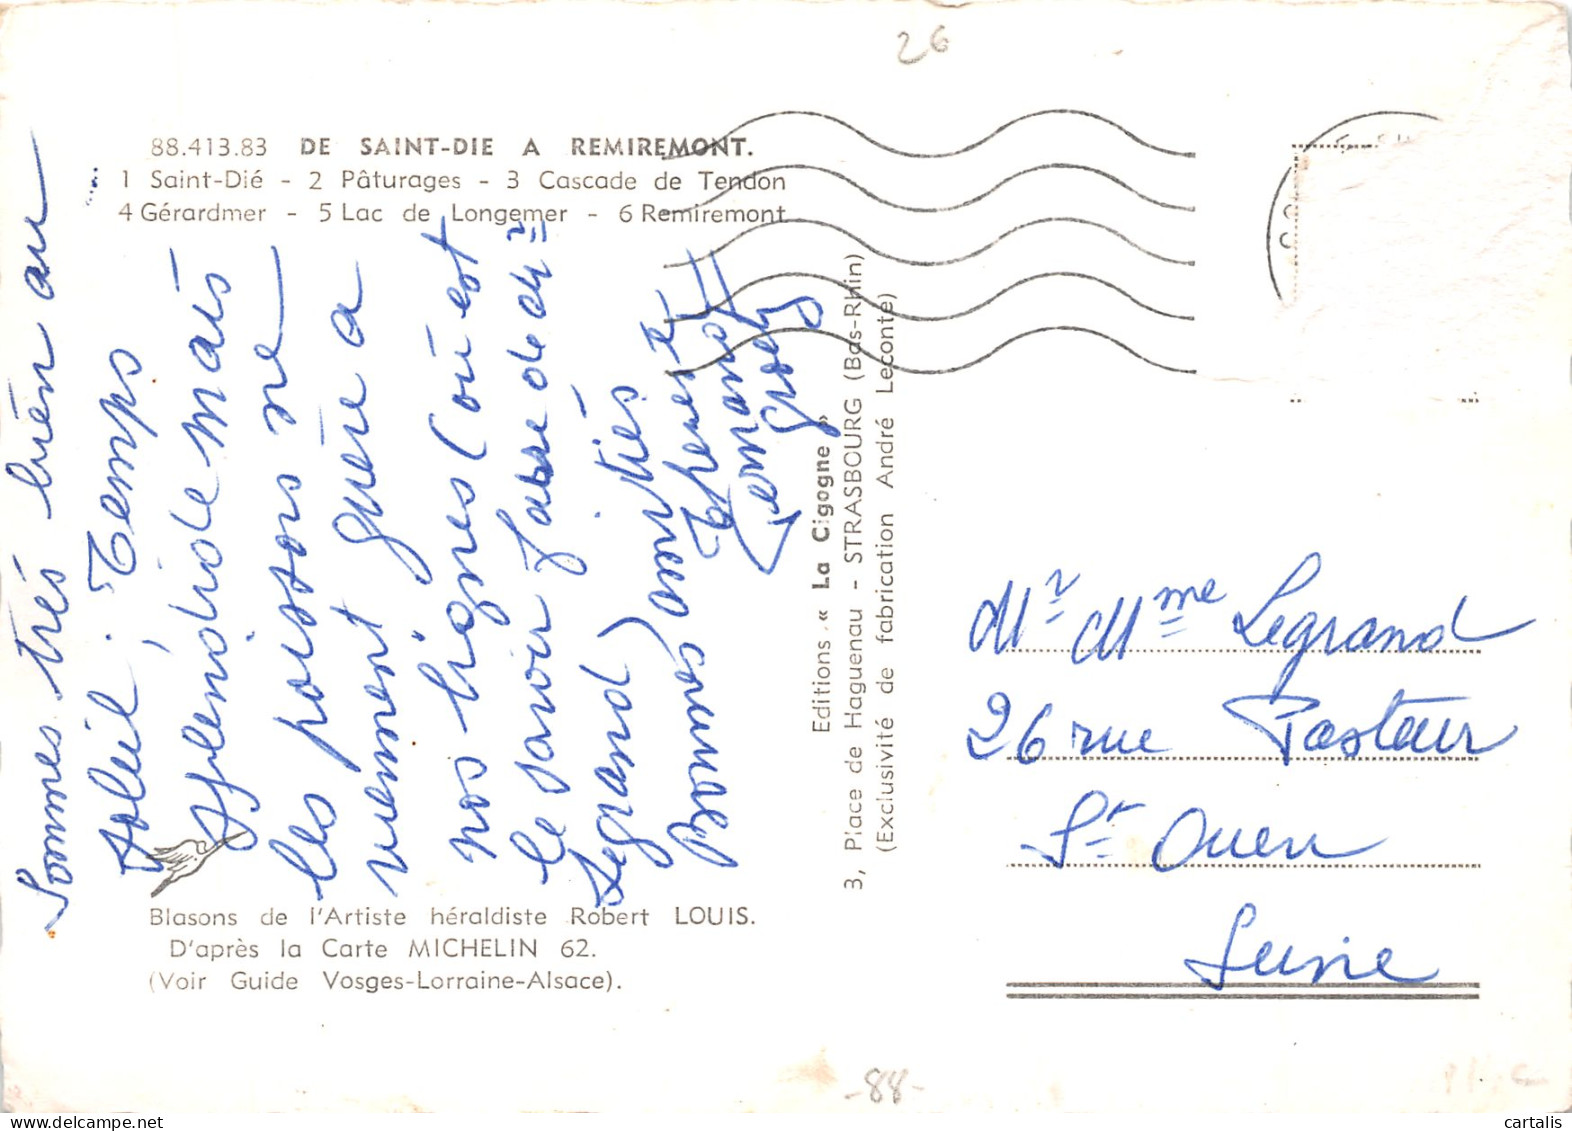 26
88.413.83 DE SAINT-DIE A REMIREMONT.
1 Saint-Dié - 2 Pâturages - 3 Cascade de Tendon
4 Gérardmer - 5 Lac de Longemer - 6 Remiremont
Sommes très bien au
soleil ; Temps
splendide mais
les poissons ne
viennent guère a
nos lignes (où est
le savoir faire de Mr
Legrand)
Bonnes amitiés
Thérèse
Fernand
Editions « La Cigogne »
3, Place de Haguenau - STRASBOURG (Bas-Rhin)
(Exclusivité de fabrication André Leconte)
Mr Mme Legrand
26 rue Pasteur
St Ouen
Seine
Blasons de l'Artiste héraldiste Robert LOUIS.
D'après la Carte MICHELIN 62.
(Voir Guide Vosges-Lorraine-Alsace).
-88-
cartalis